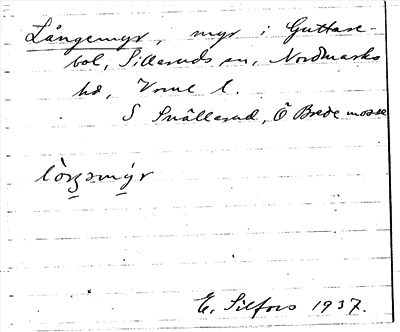 Långemyr, myr i Guttane-
bol, Silleruds sn, Nordmarks
hd, Vrml l.
S Snällerud, Ö Bredemosse
lòŋəmy̋r
E. Silfors 1937.